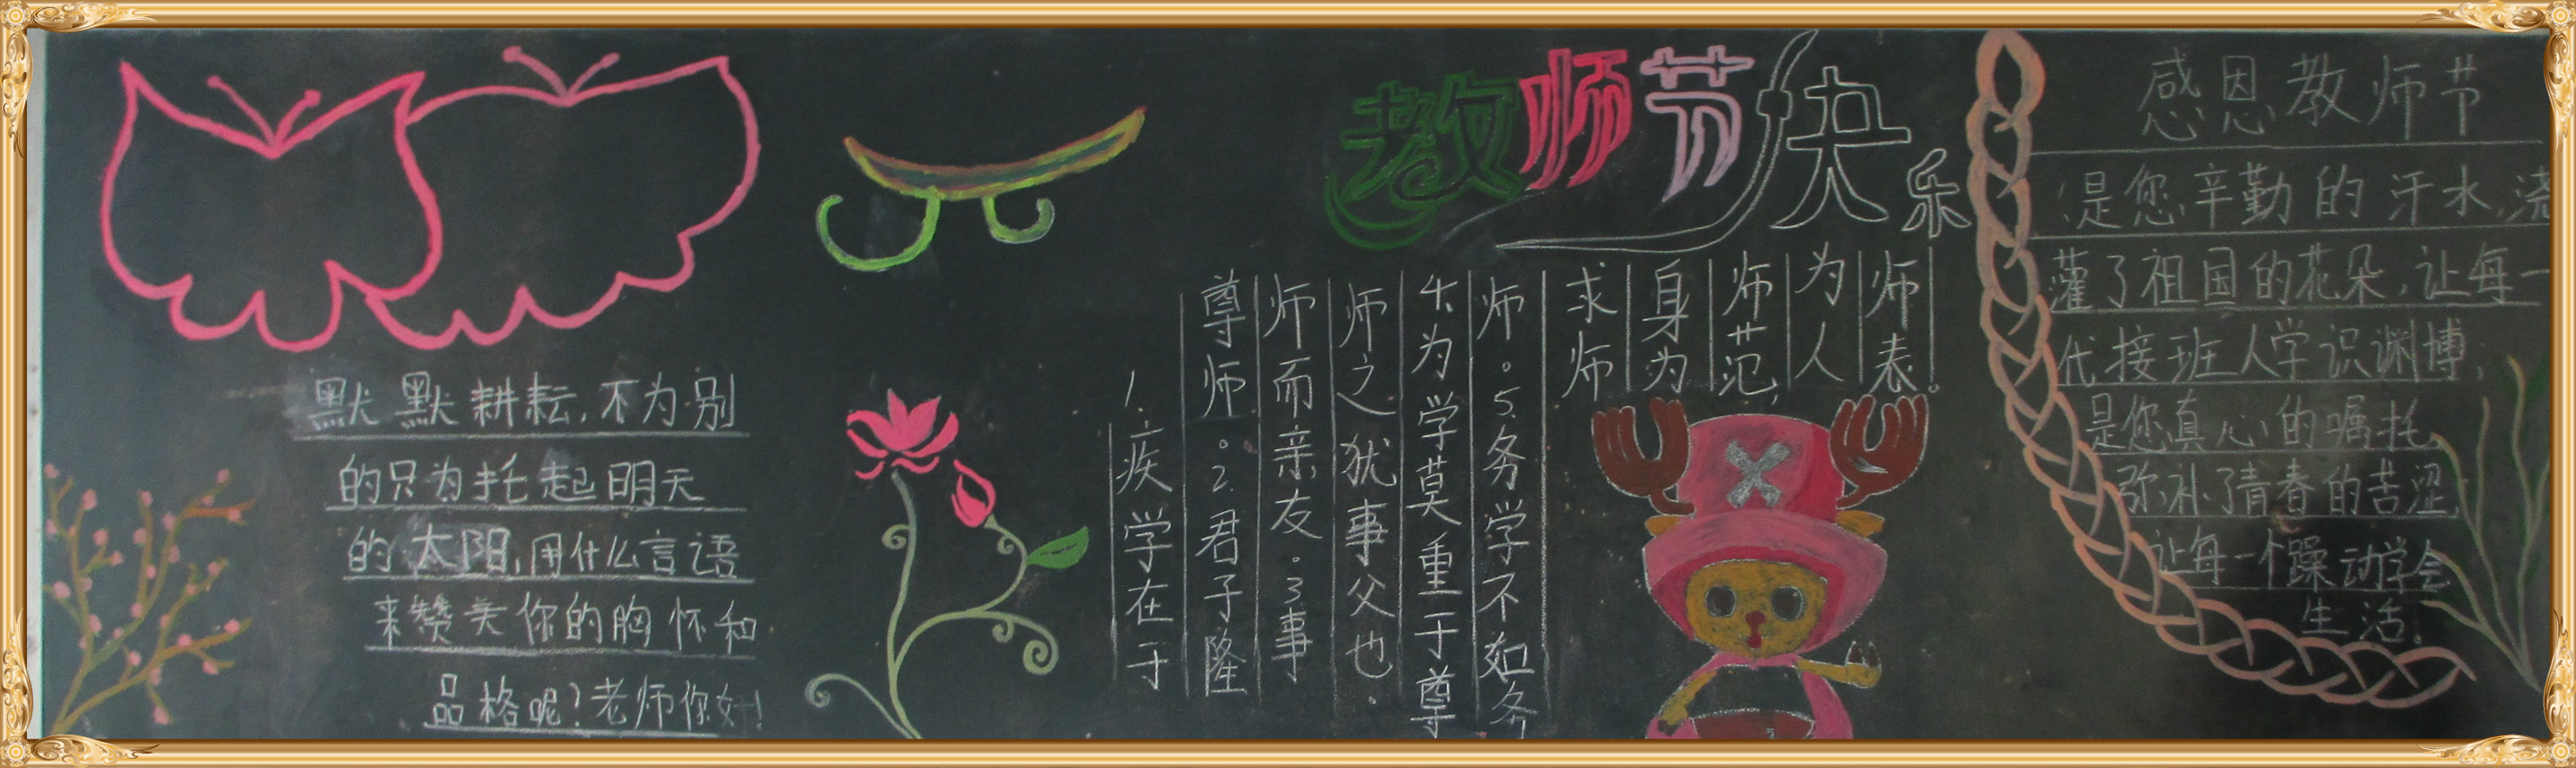 教师节快乐
默默耕耘,不为别
的只为托起明天
的太阳,用什么言语
来赞美你的胸怀和
品格呢?老师你好!
1.疾学在于
尊师。2.君子隆
师而亲友。3事
师之犹事父也.
4.为学莫重于尊
师。5.务学不如务
求师
身为
师范,
为人
师表。
感恩教师节
是您辛勤的汗水,浇
灌了祖国的花朵,让每一
代接班人学识渊博;
是您真心的嘱托,
弥补了青春的苦涩,
让每一个躁动学会
生活.